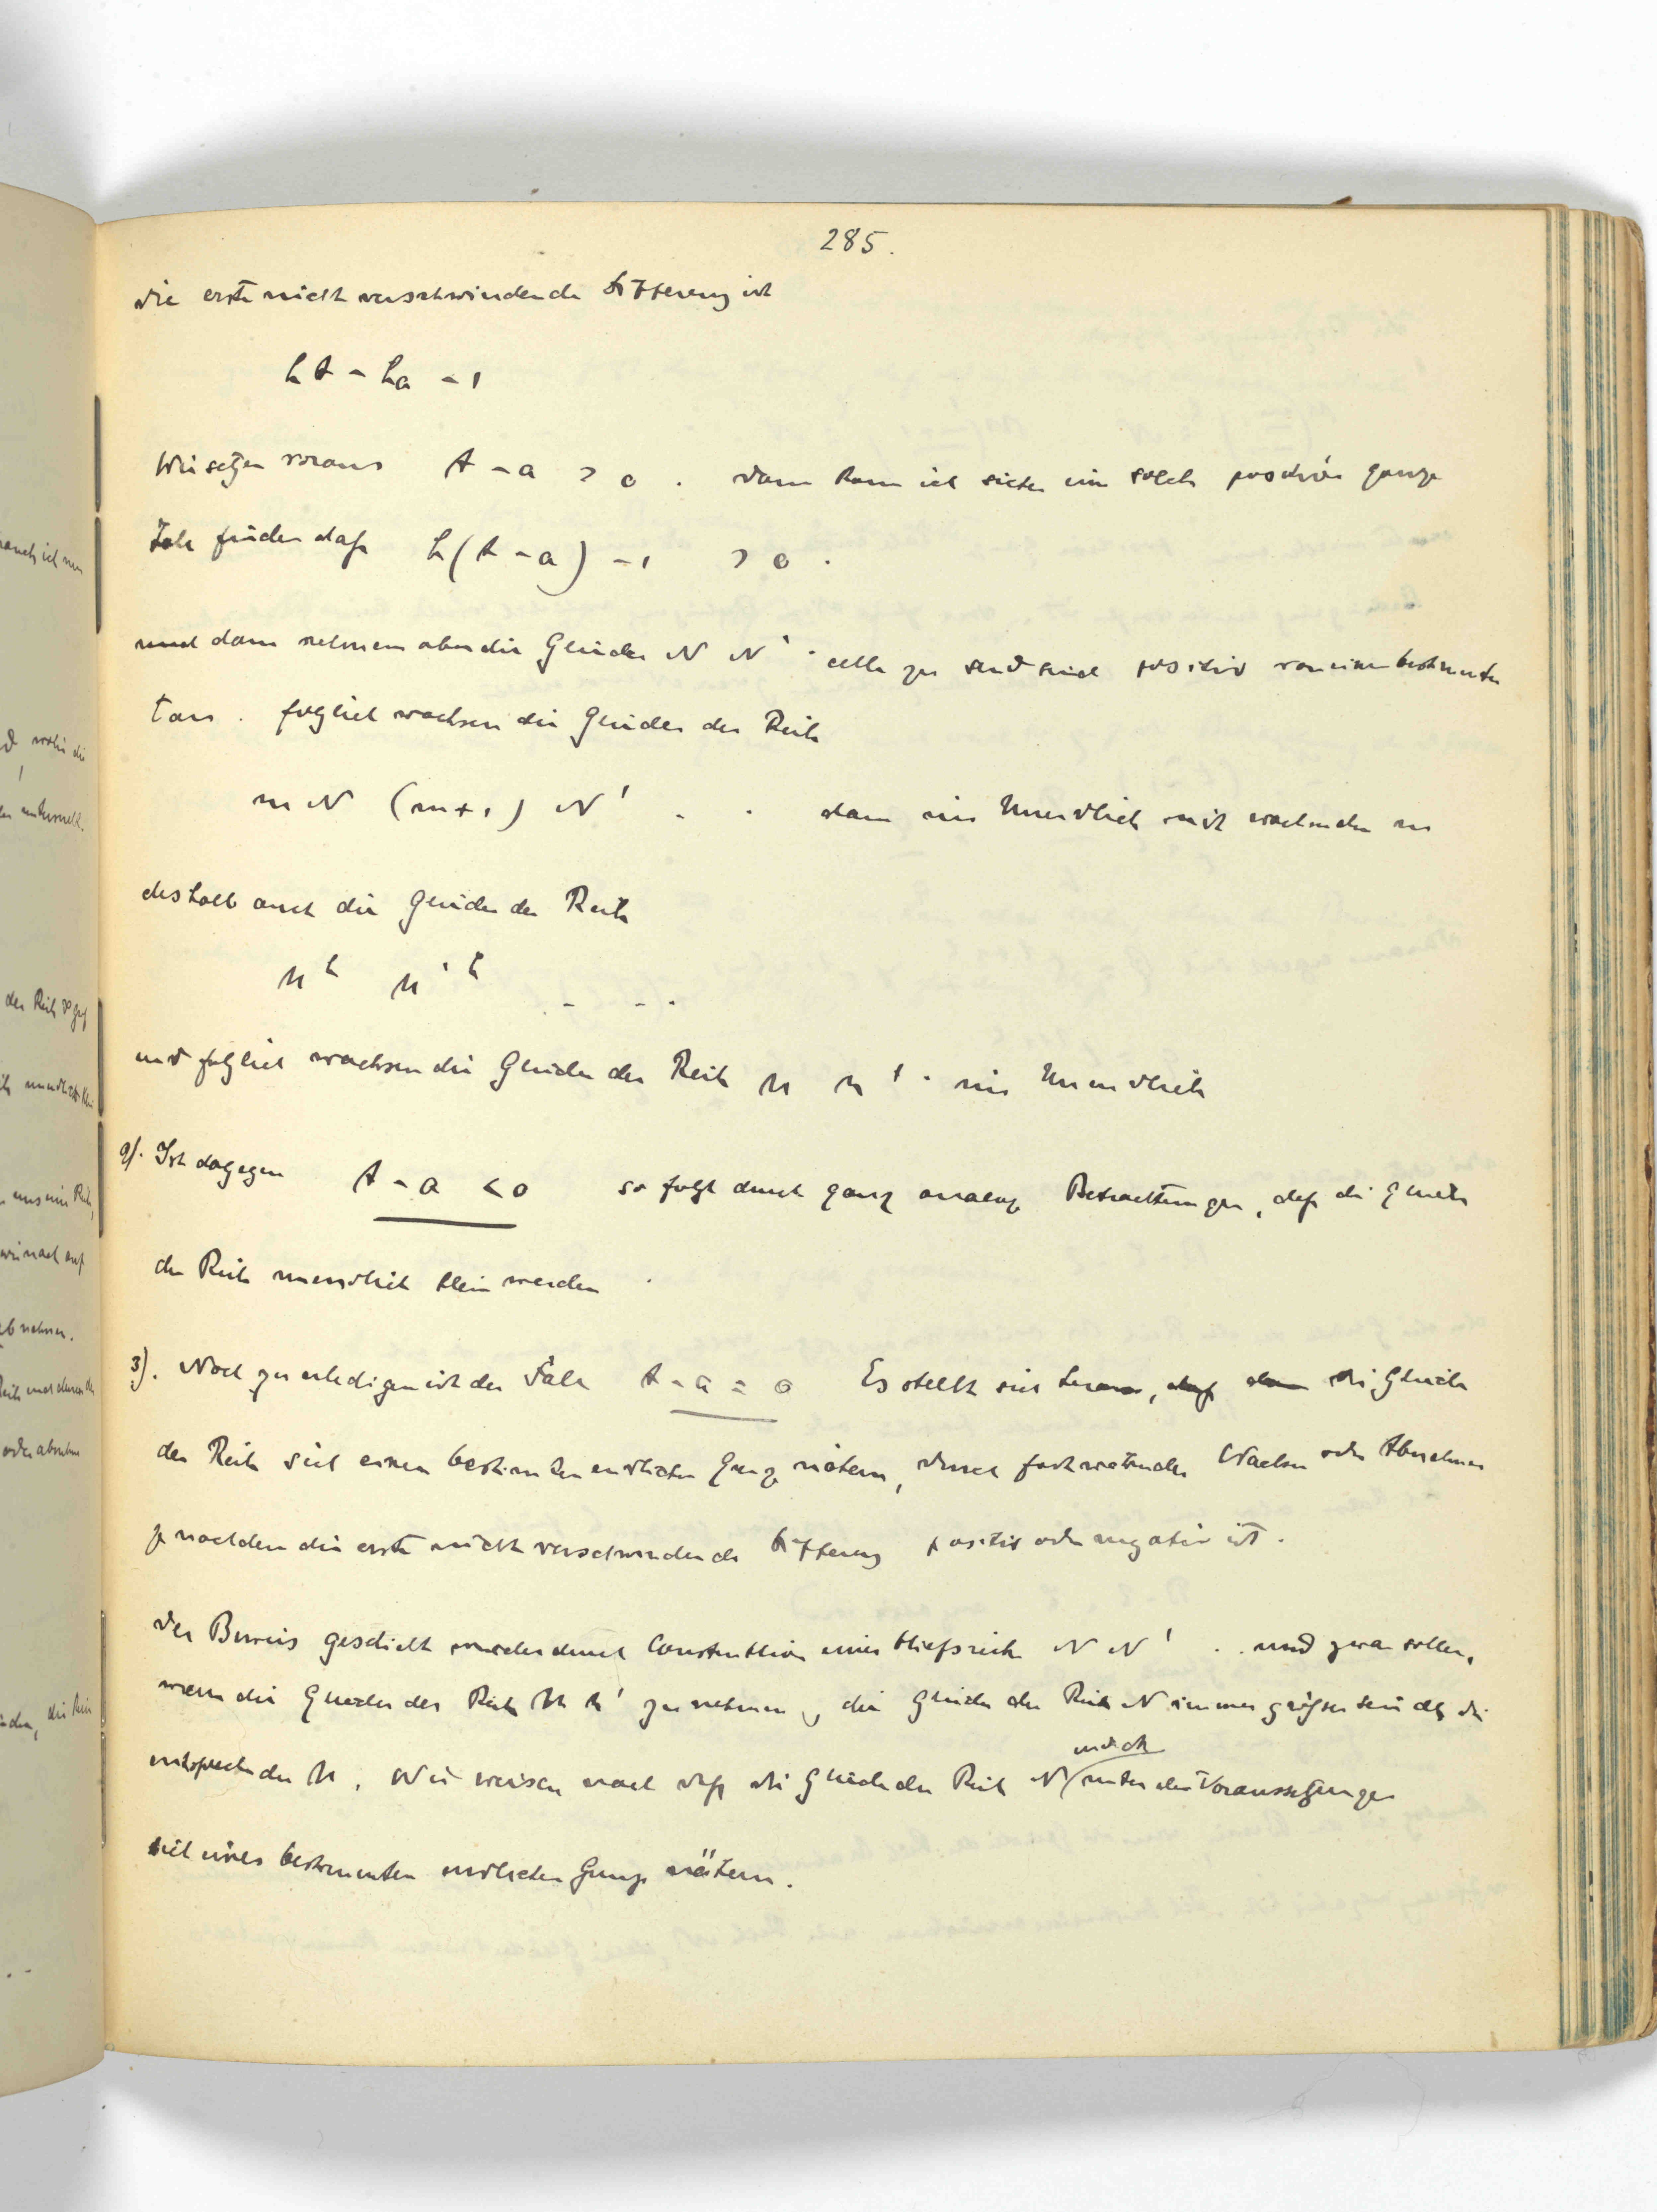 285.
die erste nicht verschwindende Differenz ist
h A - h a - 1
Wir setzen voraus A - a > 0 . dann kann ich sicher eine solche positive ganze
Zahl finden daß h (A - a) - 1 > 0 .
und dann nehmen aber die Glieder N N' . alle zu und sind positiv von einem bestimmten
t an . folglich wachsen die Glieder der Reihe
m N (m+1) N' . . dann ins Unendliche mit wachsendem m
deshalb auch die Glieder der Reihe
n^h n'^h . - - .
und folglich wachsen die Glieder der Reihe n n' . ins Unendliche
2). Ist dagegen A - a < 0 so folgt durch ganz analoge Betrachtungen, daß die Glieder
der Reihe unendlich klein werden .
3). Noch zu erledigen ist der Fall A - a = 0 Es stellt sich heraus, daß dann die Glieder
der Reihe sich einer bestimmten endlichen Grenze nähern, durch fortwährendes Wachsen oder Abnehmen
je nachdem die erste nicht verschwindende Differenz positiv oder negativ ist .
Der Beweis geschieht wieder durch Construktion einer Hilfsreihe N N' . . und zwar sollen,
wenn die Glieder der Reihe n n' zunehmen, die Glieder der Reihe N immer größer sein als die
entsprechenden n . Wir weisen nach daß die Glieder der Reihe N unter den Voraussetzungen
sich einer bestimmten endlichen Grenze nähern.